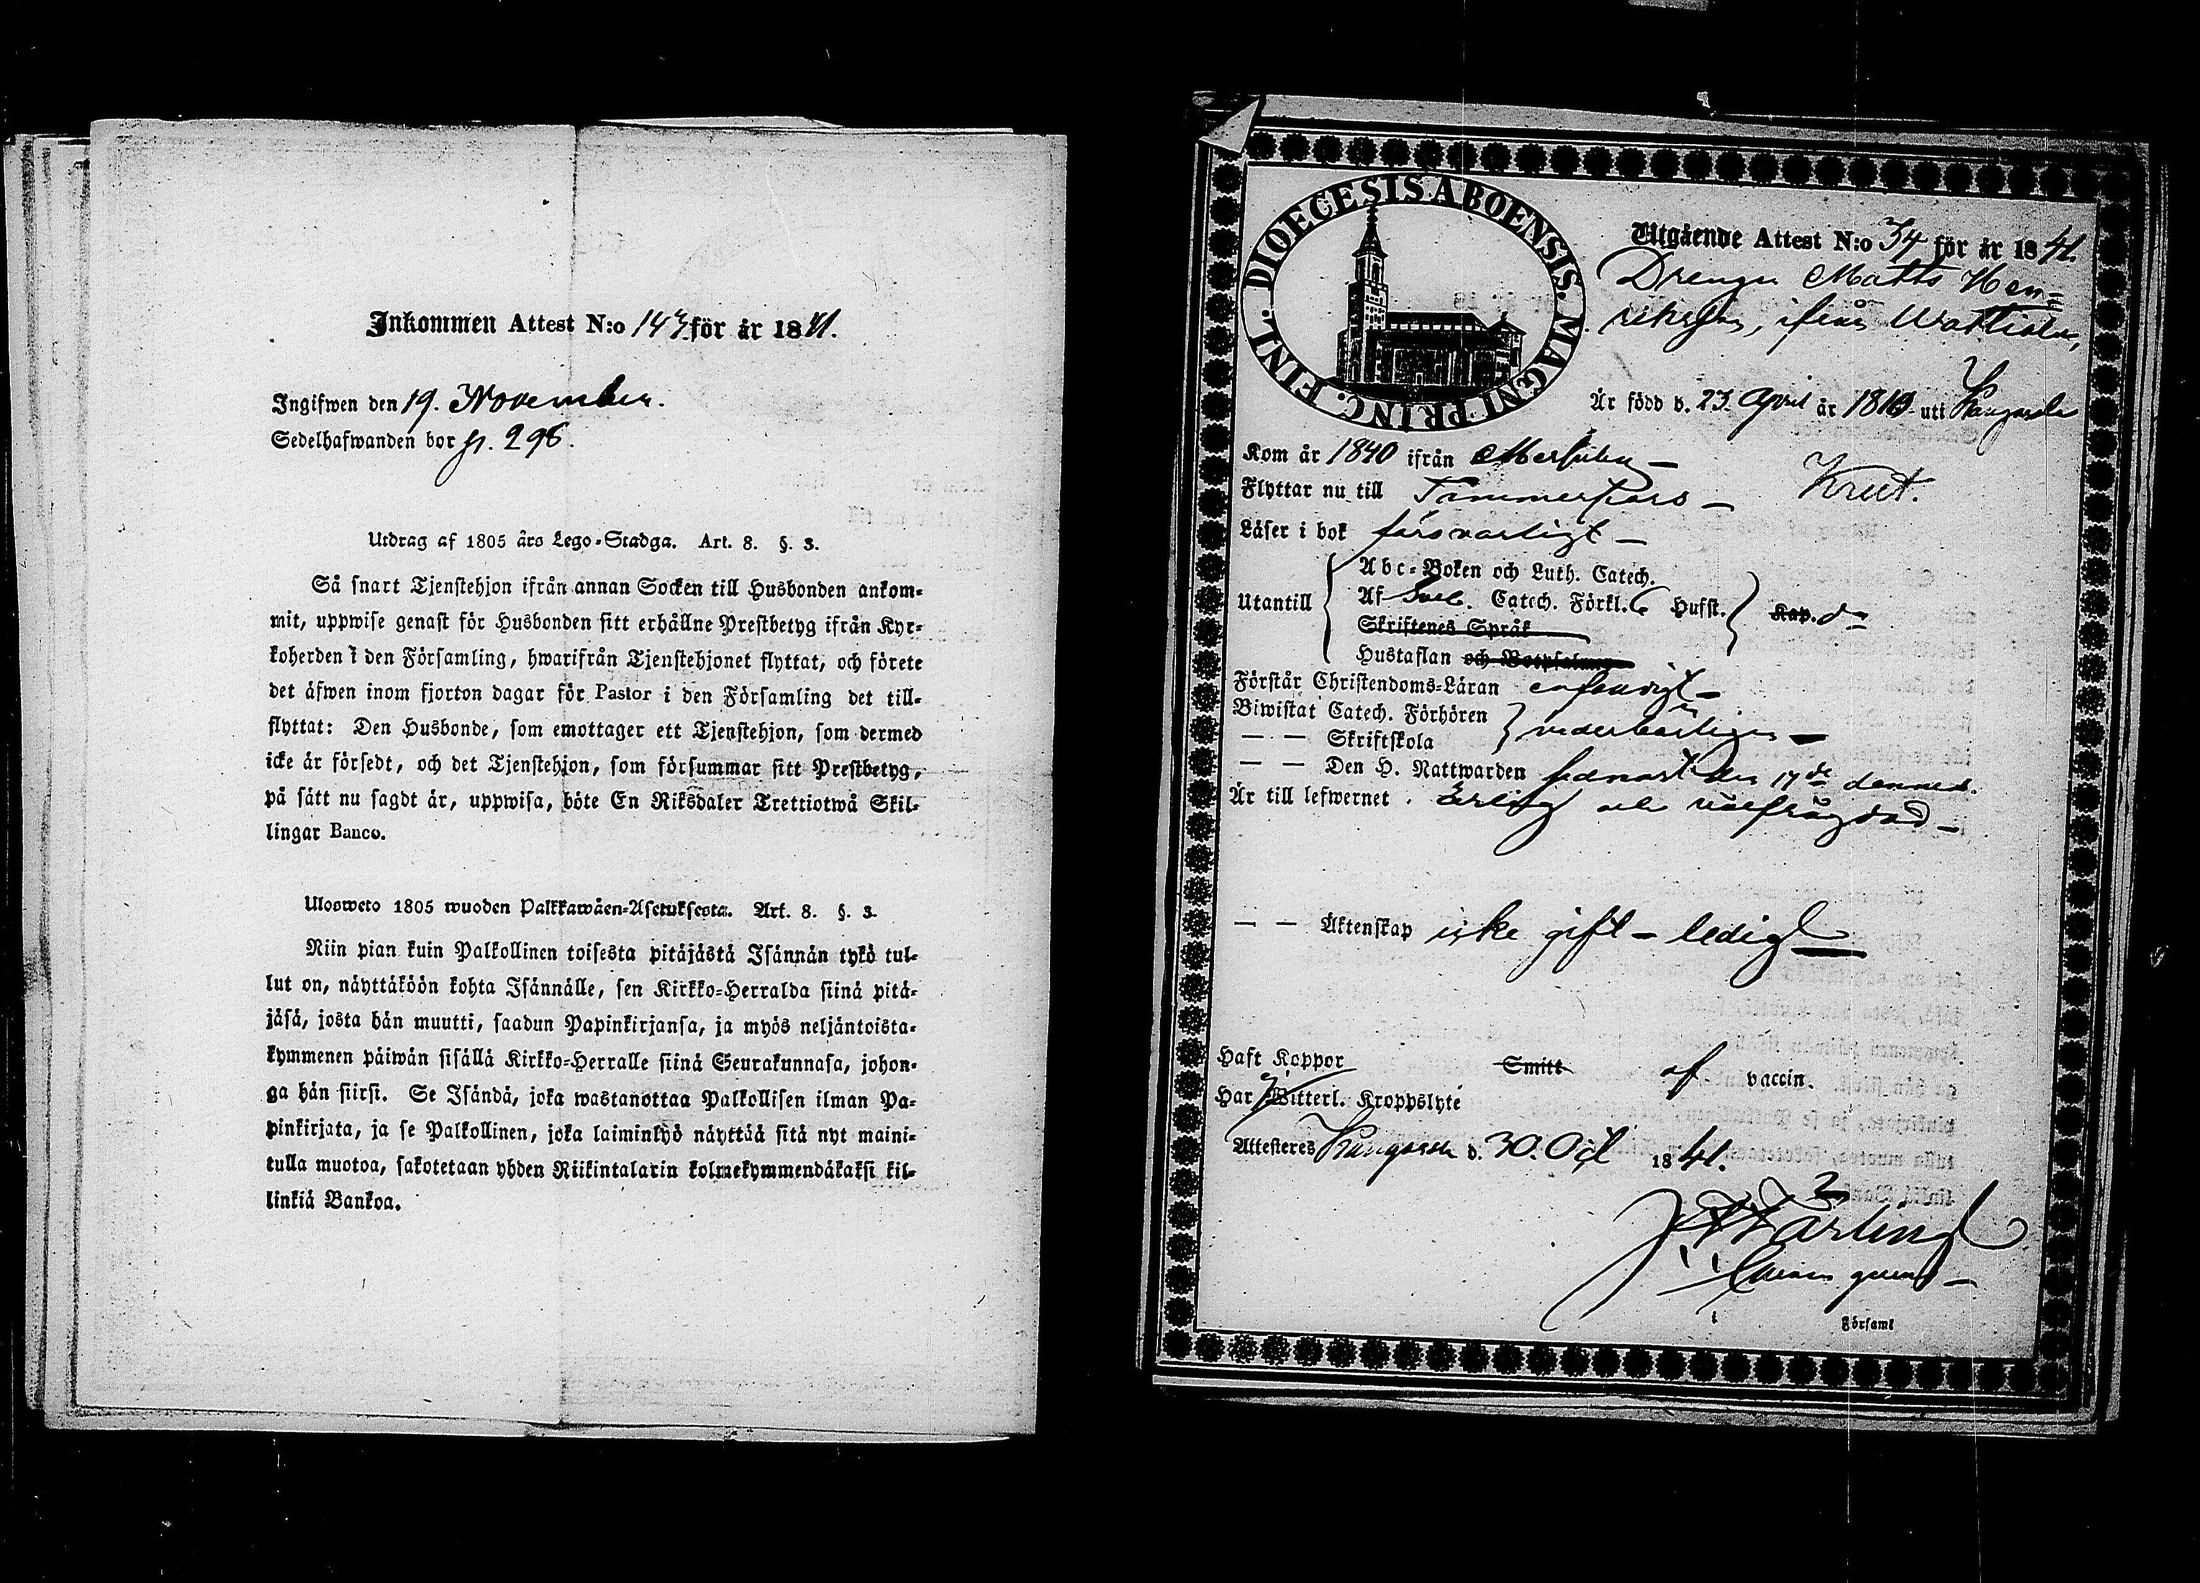 Inkommen Attest N:o 143 för år 1841.
Ingifwen den 19. November.
Sedelhafwanden bor p. 298.
Utdrag af 1805 års Lego-Stadga. Art. 8. §. 3.
Så snart Tjenstehjon ifrån annan Socken till Husbonden ankom-
mit, uppwise genast för Husbonden sitt erhållne Prestbetyg ifrån Kyr-
koherden i den Församling, hwarifrån Tjenstehjonet flyttat, och förete
det äfwen inom fjorton dagar för Pastor i den Församling det till-
flyttat: Den Husbonde, som emottager ett Tjenstehjon, som dermed
icke är försedt, och det Tjenstehjon, som försummar sitt Prestbetyg,
på sätt nu sagdt är, uppwisa, böte En Riksdaler Trettiotwå Skil-
lingar Banco.
Ulosweto 1805 wuoden Palkkawäen-Asetuksesta. Art. 8. §. 3.
Niin pian kuin Palkollinen toisesta pitäjästä Isännän tykö tul-
lut on, näyttäköön kohta Isännälle, sen Kirkko-Herralda siinä pitä-
jäsä, josta hän muutti, saadun Papinkirjansa, ja myös neljäntoista-
kymmenen päiwän sisällä Kirkko-Herralle siinä Seurakunnasa, johon-
ga hän siirsi. Se Isändä, joka wastanottaa Palkollisen ilman Pa-
pinkirjata, ja se Palkollinen, joka laiminlyö näyttää sitä nyt maini-
tulla muotoa, sakotetaan yhden Riikintalarin kolmekymmendäkaksi kil-
linkiä Bankoa.
DIOECESIS ABOENSIS. MAGNI PRINC. FINL.
Utgående Attest N:o 34 för år 1841.
Drengen Matts Hen=
riksson, ifrån Wattiala,
Är född d. 23 April år 1819 uti Kangasala
Kom år 1840 ifrån
Flyttar nu till Tammerfors – Krut.
Läser i bok försvarligt –
Abc-Boken och Luth. Catech.
Utantill Af Sveb. Catech. Förkl. Hufst. Kap. do
Skriftenes Språk
Hustaflan och Botpsalmer
Förstår Christendoms-Läran enfaldigt –
Biwistat Catech. Förhören
— — Skriftskola vederbörligen –
— — Den H. Nattwarden sednast den 17de dennes.
Är till lefwernet ärlig och välfrägdad –
— — Äktenskap icke gift – ledig
Haft Koppor Smitt af vaccin.
Har ej Witterl. Kroppslyte
Attesteras Kangasala d. 30. Oct 1841.
Församl